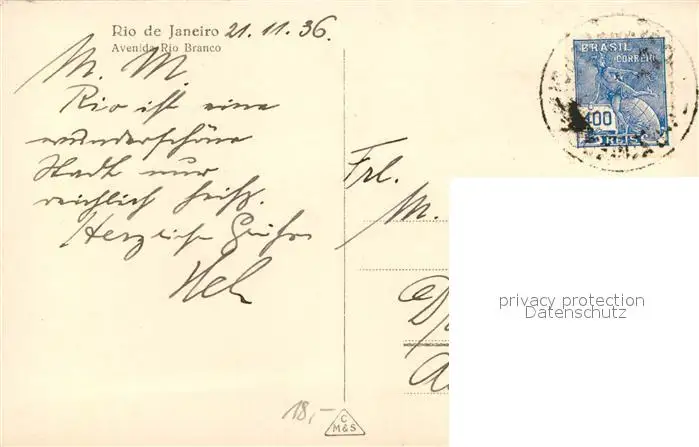 Rio de Janeiro 21. 11. 36.
Avenida Rio Branco
M. M.
Rio ist eine
wunderschöne
Stadt nur
reichlich heiß.
Herzliche Grüße
Hel
BRASIL
CORREIO
400
REIS
Frl.
M.
privacy protection
Datenschutz
18,-
C
M&S